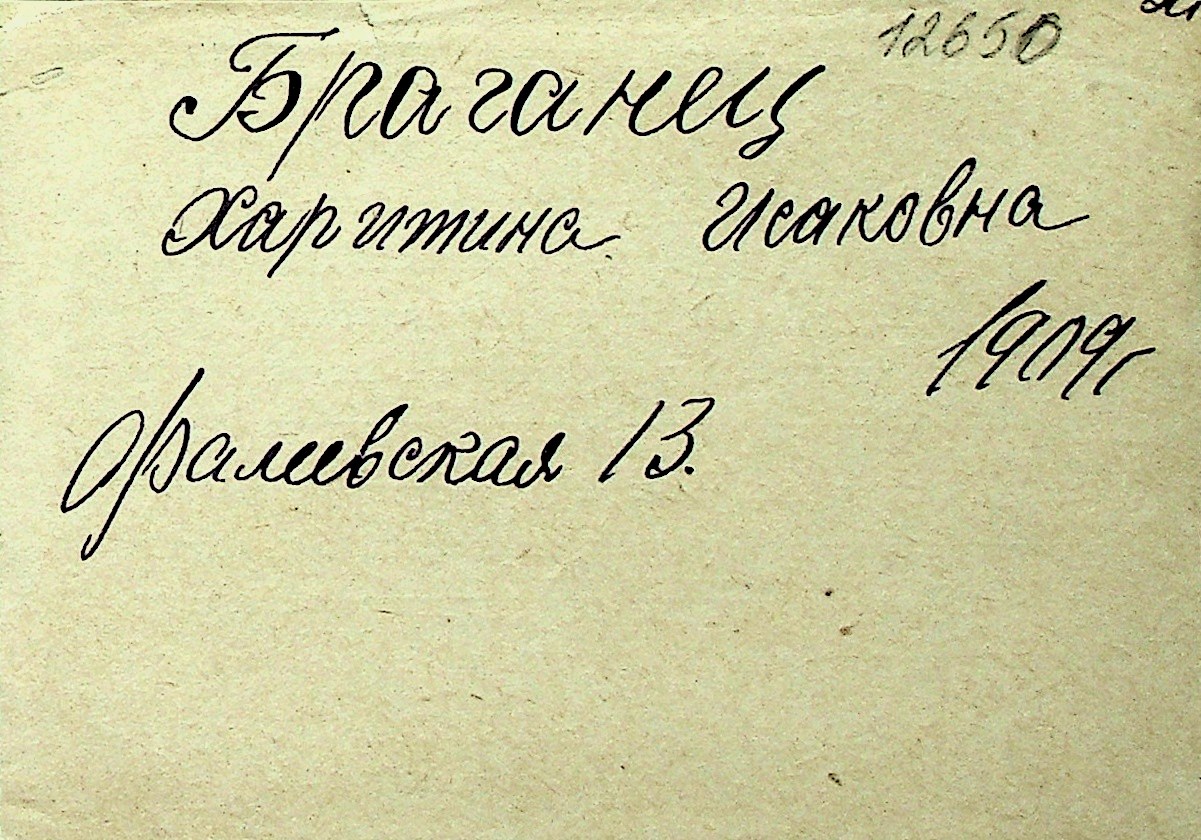 12650
Браганец
Харитина Исаковна
1909г
Фалиевская 13.